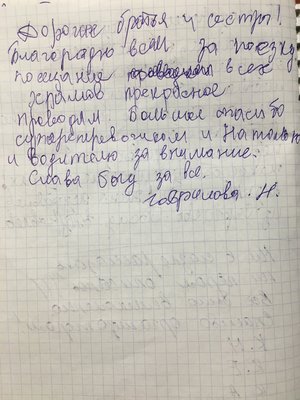 Дорогие братья и сестры!
Благодарю всем за поездку
посещание всех
храмов прекрасное
проводям. Большое спасибо
суперперевочецем и Наталью
и водителю за внимание.
Слава богу за все.
Гаврилова. Н.